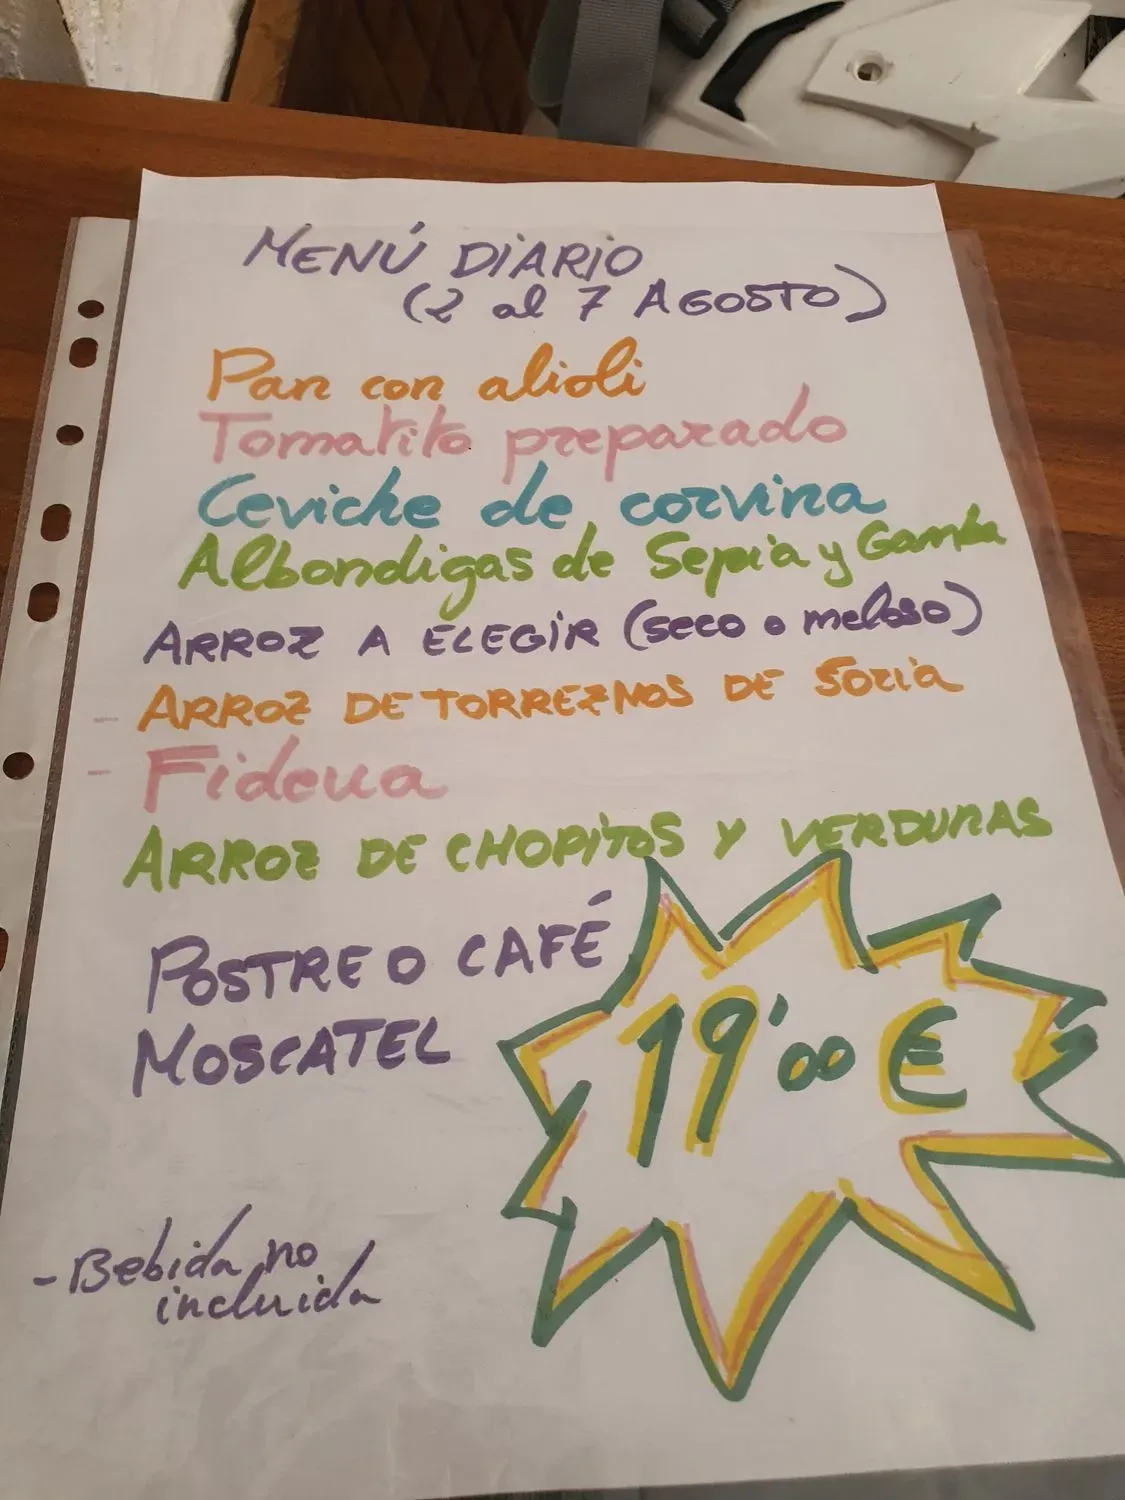 MENÚ DIARIO
(2 al 7 AGOSTO)
Pan con alioli
Tomatito preparado
Ceviche de corvina
Albondigas de Sepia y Gamba
ARROZ A ELEGIR (seco o meloso)
- ARROZ DE TORREZNOS DE SORIA
- Fideua
ARROZ DE CHOPITOS Y VERDURAS
POSTRE O CAFÉ
MOSCATEL
19'00 €
- Bebida no
incluida